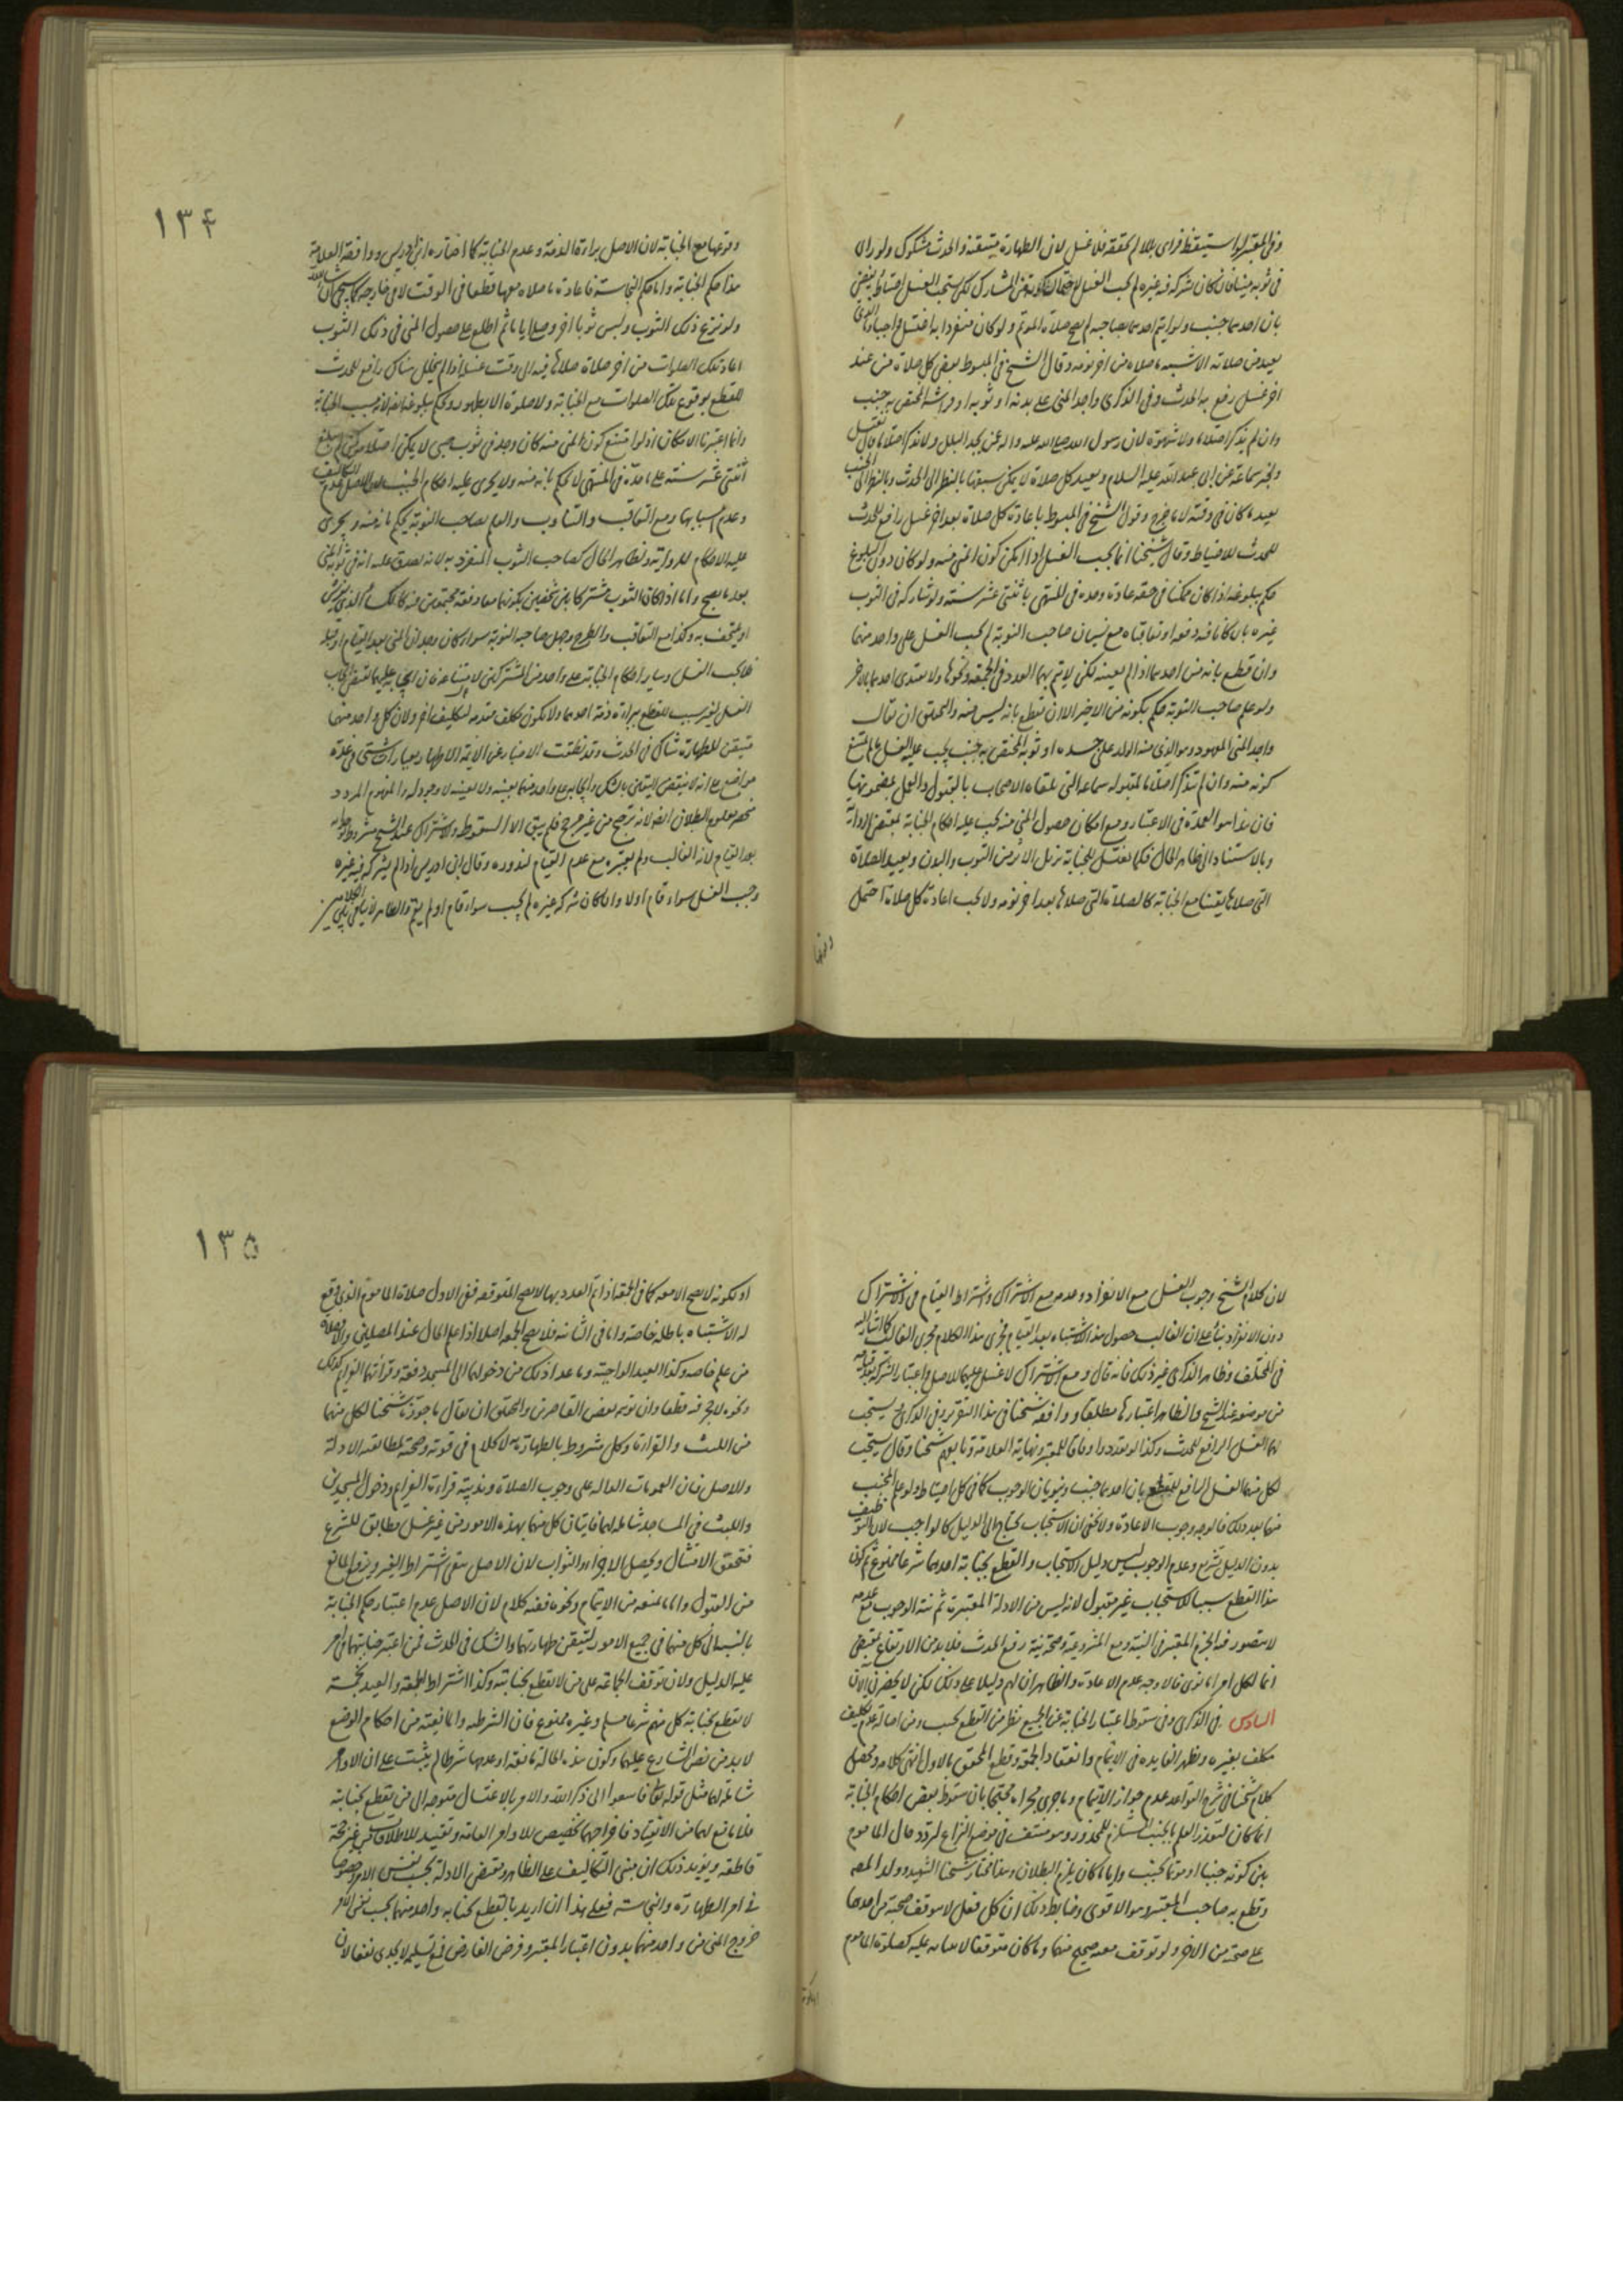 وفى المعتبر لو استيقظ فراى بللا لم يتحققه فلا غسل لان الطهارة متيقنة والحدث مشكوك ولو راى
فى ثوبه منيا فان كان شركه فيه غيره لم يجب الغسل لكن يستحب الغسل احتياطا
بان احدهما جنب ولو ايتم احدهما بصاحبه لم تصح صلاة المؤتم ولو كان منفردا به اغتسل واجبا
يعيد من صلاته الاشبه ما صلاه من اخر نومه وقال الشيخ فى المبسوط يقضى كل صلاة من عند
اخر غسل رفع به الحدث وفى الذكرى واجد المنى على بدنه او ثوبه او فراشه المختص به جنب
وان لم يذكر احتلاما ولا شهوة لان رسول الله صلى الله عليه واله عن يجد البلل ولا يذكر احتلاما قال يغتسل
ولخبر سماعة عن ابى عبد الله عليه السلام ويعيد كل صلاة لا يمكن سبقها بالنظر الى الحدث وبالنظر الى الخبث
يعيد ما كان فى وقته لا ما خرج وقول الشيخ فى المبسوط باعادة كل صلاة بعد اخر غسل رافع للحدث
للحدث للاحتياط وقال شيخنا انما يجب الغسل اذا امكن كون المنى منه ولو كان دون البلوغ
حكم ببلوغه اذا كان ممكنا فى حقه عادة وحده فى المنتهى باثنتى عشر سنة ولو شاركه فى الثوب
غيره بان كانا فيه دفعة او تعاقباه مع نسيان صاحب النوبة لم يجب الغسل على واحد منهما
وان قطع بانه من احدهما اذا لم يعينه لكن لا يتم بهما العدد فى الجمعة ونحوها ولا يقتدى احدهما بالاخر
ولو علم صاحب النوبة حكم بكونه من الاخير الا ان يقطع بانه ليس منه والتحقيق ان يقال
واجد المنى المعهود وهو الذى منه الولد على جسده او ثوبه المختص به جنب يجب عليه الغسل ما لم يمتنع
كونه منه وان لم يتذكر احتلاما لمقبولة سماعة التى تلقاه الاصحاب بالقبول والعمل بمضمونها
فان هذا هو العمدة فى الاعتبار ومع امكان حصول المنى منه يجب عليه احكام الجنابة بمقتضى الرواية
وبالاستناد الى ظاهر الحال فكما يغتسل للجنابة يزيل الاثر من الثوب والبدن ويعيد الصلاة
التى صلاها يقينا مع الجنابة كالصلاة التى صلاها بعد اخر نومه ولا يجب اعادة كل صلاة احتمل
وقوعها
١٣۴
وقوعها مع الجنابة لان الاصل براءة الذمة وعدم الجنابة كما اختاره ابن ادريس ووافقه العلامة
هذا حكم الجنابة واما حكم النجاسة فاعادة ما صلاه معها قطعا فى الوقت لا فى خارجه كما سيجئ ان شاء الله
ولو نزع ذلك الثوب ولبس ثوبا اخر وصلى اياما ثم اطلع على حصول المنى فى ذلك الثوب
اعاد تلك الصلوات من اخر صلاة صلاها فيه الى وقت غسله اذا لم يتخلل هناك رافع للحدث
للقطع بوقوع تلك الصلوات مع الجنابة ولا صلوة الا بطهور
وانما اعتبرنا الامكان اذ لو امتنع كون المنى منه كان وجد فى ثوب صبى لا يمكن احتلامه
اثنتى عشر سنة على ما حده فى المنتهى لا يحكم بانه منه ولا يجرى عليه احكام الجنب
وعدم اسبابها ومع التعاقب والتناوب والعلم بصاحب النوبة يحكم بانه منه ويجرى
عليه الاحكام للرواية ولظاهر الحال كصاحب الثوب المنفرد به لانه يصدق عليه انه فى ثوبه المنى
بعد ما يصبح واما اذا كان الثوب مشتركا بين شخصين بكونهما معا دفعة مجتمعين فيه كالكساء الذى يفترش
او يلتحف به وكذا مع التعاقب والطرح وجهل صاحب النوبة سواء كان وجدانها المنى بعد القيام او قبله
فلا يجب الغسل وساير احكام الجنابة على واحد من المشتركين
الغسل بغير سبب للقطع ببراءة ذمة احدهما ولا يكون مكلف مقدمة لتكليف اخر ولان كل واحد منهما
متيقن للطهارة شاك فى الحدث وقد نطقت الاخبار عن الائمة الاطهار بعبارات شتى فى عدة
مواضع على انه لا ينقض اليقين بالشك وايجابه على واحد منهما بعينه ولا بعينه لا وجود له والمفهوم المردد
معلوم البطلان ايضا لانه ترجيح من غير مرجح فلم يبق الا السقوط والاشتراك عند الشيخ مشروط
بعد القيام لانه الغالب ولم يعتبره مع عدم القيام لندوره وقال ابن ادريس اذا لم يشركه فيه غيره
وجب الغسل سواء قام اولا وان كان شركه غيره لم يجب سواء قام او لم يقم والظاهر
لان كلام الشيخ وجوب الغسل مع الانفراد وعدمه مع الاشتراك واشتراط القيام فى الاشتراك
دون الانفراد بناء على ان الغالب حصول هذا الاشتباه بعد القيام فجرى هذا الكلام مجرى الغالب كما اشار اليه
فى المختلف وظاهر الذكرى غير ذلك فانه قال ومع الاشتراك لا غسل عليهما للاصل واعتبار الشركة
من موضعه عند الشيخ والظاهر اعتبارها مطلقا ووافقه شيخنا فى هذا التقرير وفى الذكرى يستحب
لهما الغسل الرافع للحدث وكذا لو تعددوا وفاقا للمعتبر ونهاية العلامة وتابعهم شيخنا وقال يستحب
لكل منهما الغسل الرافع للقطع بان احدهما جنب وينويان الوجوب كما فى كل احتياط ولو علم المجنب
منهما بعد ذلك فالوجه وجوب الاعادة ولا يخفى ان الاستحباب يحتاج الى الدليل كالواجب لان التوظيف
بدون الدليل تشريع وعدم الوجوب ليس دليل الاستحباب والقطع بجنابة احدهما شرعا ممنوع ثم كون
هذا القطع سببا للاستحباب غير مقبول لانه ليس من الادلة المعتبرة ثم نية الوجوب مع عدمه
لا يتصور فيه الجزم المعتبر فى النية ومع المشروعية وصحة نية رفع الحدث فلا بد من الارتفاع بمقتضى
انما لكل امرء ما نوى فلا وجه لعدم الاعادة والظاهر ان لهم دليلا على ذلك لكن لا يحضرنى الان
السادس فى الذكرى وفى سقوط اعتبار الجنابة عن الجميع نظر من القطع بجنب ومن اصالة عدم تكليف
مكلف بغيره وتظهر الفايدة فى الايتمام وانعقاد الجمعة وقطع المحقق بالاول انتهى كلامه ومحصل
كلام شيخنا فى شرح القواعد عدم جواز الايتمام وما جرى مجراه محتجا بان سقوط بعض احكام الجنابة
انما كان لتعذر العلم بالجنب المستلزم للمحذور وهو منتف فى موضع النزاع لتردد حال الماموم
بين كونه جنبا او مؤتما بجنب وايا ما كان يلزم البطلان وهذا مختار شيخنا الشهيد وولد المص
وقطع به صاحب المعتبر هو الاقوى وضابط ذلك ان كل فعل لا يتوقف صحته من احدهما
على صحته من الاخر ولو توقف معه صحيح منهما وما كان متوقفا لا معابه عليه كصلوة الماموم
او لكونه
١٣٥
او لكونه لا يصح الا معه كما فى الجمعة اذا تم العدد بهما لا يصح المتوقف ففى الاول صلاة الماموم الذى وقع
له الاشتباه باطلة خاصة واما فى الثانية فلا تصح الجمعة اصلا اذا علم الحال عند المصلين
من علم خاصة وكذا العيد الواجبة وما عدا ذلك من دخولهما الى المسجد دفعة وقرائتهما العزايم كذلك
ونحوه لا حرج فيه قطعا وان توهم بعض القاصرين والتحقيق ان يقال ما جوزنا شيخنا لكل منهما
من اللبث والقراءة وكل مشروط بالطهارة لا كلام فى قوته وصحته لمطابقة الادلة
وللاصل فان العمومات الدالة على وجوب الصلاة وندبية قراءة العزايم ودخول المسجدين
واللبث فى المساجد شاملة لهما فاتيان كل منهما بهذه الامور من غير غسل مطابق للشرع
فتحقق الامتثال ويحصل الاجزاء والثواب لان الاصل ينفى اشتراط الغير ويرفع المانع
من القبول واما ما منعه من الايتمام ونحوه ففيه كلام لان الاصل عدم اعتبار حكم الجنابة
بالنسبة الى كل منهما فى جميع الامور لتيقن طهارتهما والشك فى الحدث فمن اعتبر جنابتهما فى امر
عليه الدليل ولان توقف الجماعة على من لا تقطع بجنابته وكذا اشتراط الجمعة والعيد بخمسة
لا يقطع بجنابة كل منهم شرعا مسلم وغيره ممنوع فان الشرطية والمانعية من احكام الوضع
لا بد من نص الشارع عليهما وكون هذه الحالة مانعة او عدمها شرطا لم يثبت على ان الاوامر
شاملة لهما مثل قوله تعالى فاسعوا الى ذكر الله والامر بالاغتسال متوجه الى من يقطع بجنابته
فلا مانع لهما من الانعقاد فاخراجهما تخصيص للاوامر العامة وتقييد للاطلاقات من غير حجة
قاطعة ويؤيد ذلك ان مبنى التكاليف على الظاهر ومقتضى الادلة لا بحسب نفس الامر خصوصا
فى امر الطهارة والنجاسة فعلى هذا ان اريد بالقطع بجنابة واحد منهما بحسب نفس الامر
خروج المنى من واحد منهما بدون اعتبار المعتبر وفرض الفارض فمع تسليمه لا يجدى نفعا لان